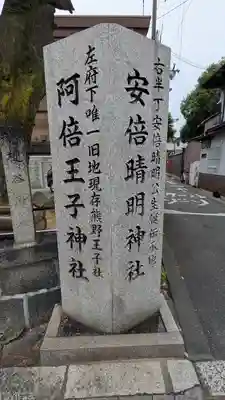 右半丁安倍晴明公生誕伝承地
安倍晴明神社
左府下唯一旧地現存熊野王子社
阿倍王子神社